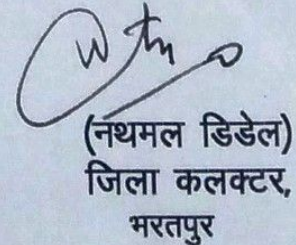 (नथमल डिडेल)
जिला कलक्टर,
भरतपुर